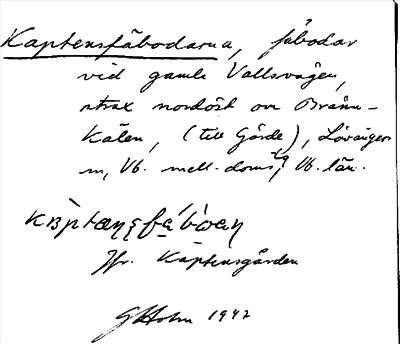 Kaptensfäbodarna, fäbodar
vid gamla Vallsvägen,
strax nordöst om Bränn-
kälen, (till Gärde), Lövånger
sn, Vb. mell. doms. Vb. län.
Jfr. Kaptensgården
G Holm 1947